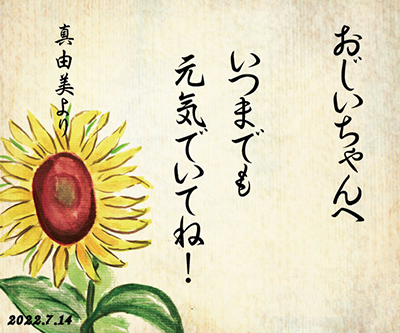 おじいちゃんへ
いつまでも
元気でいてね！
真由美より
2022.7.14